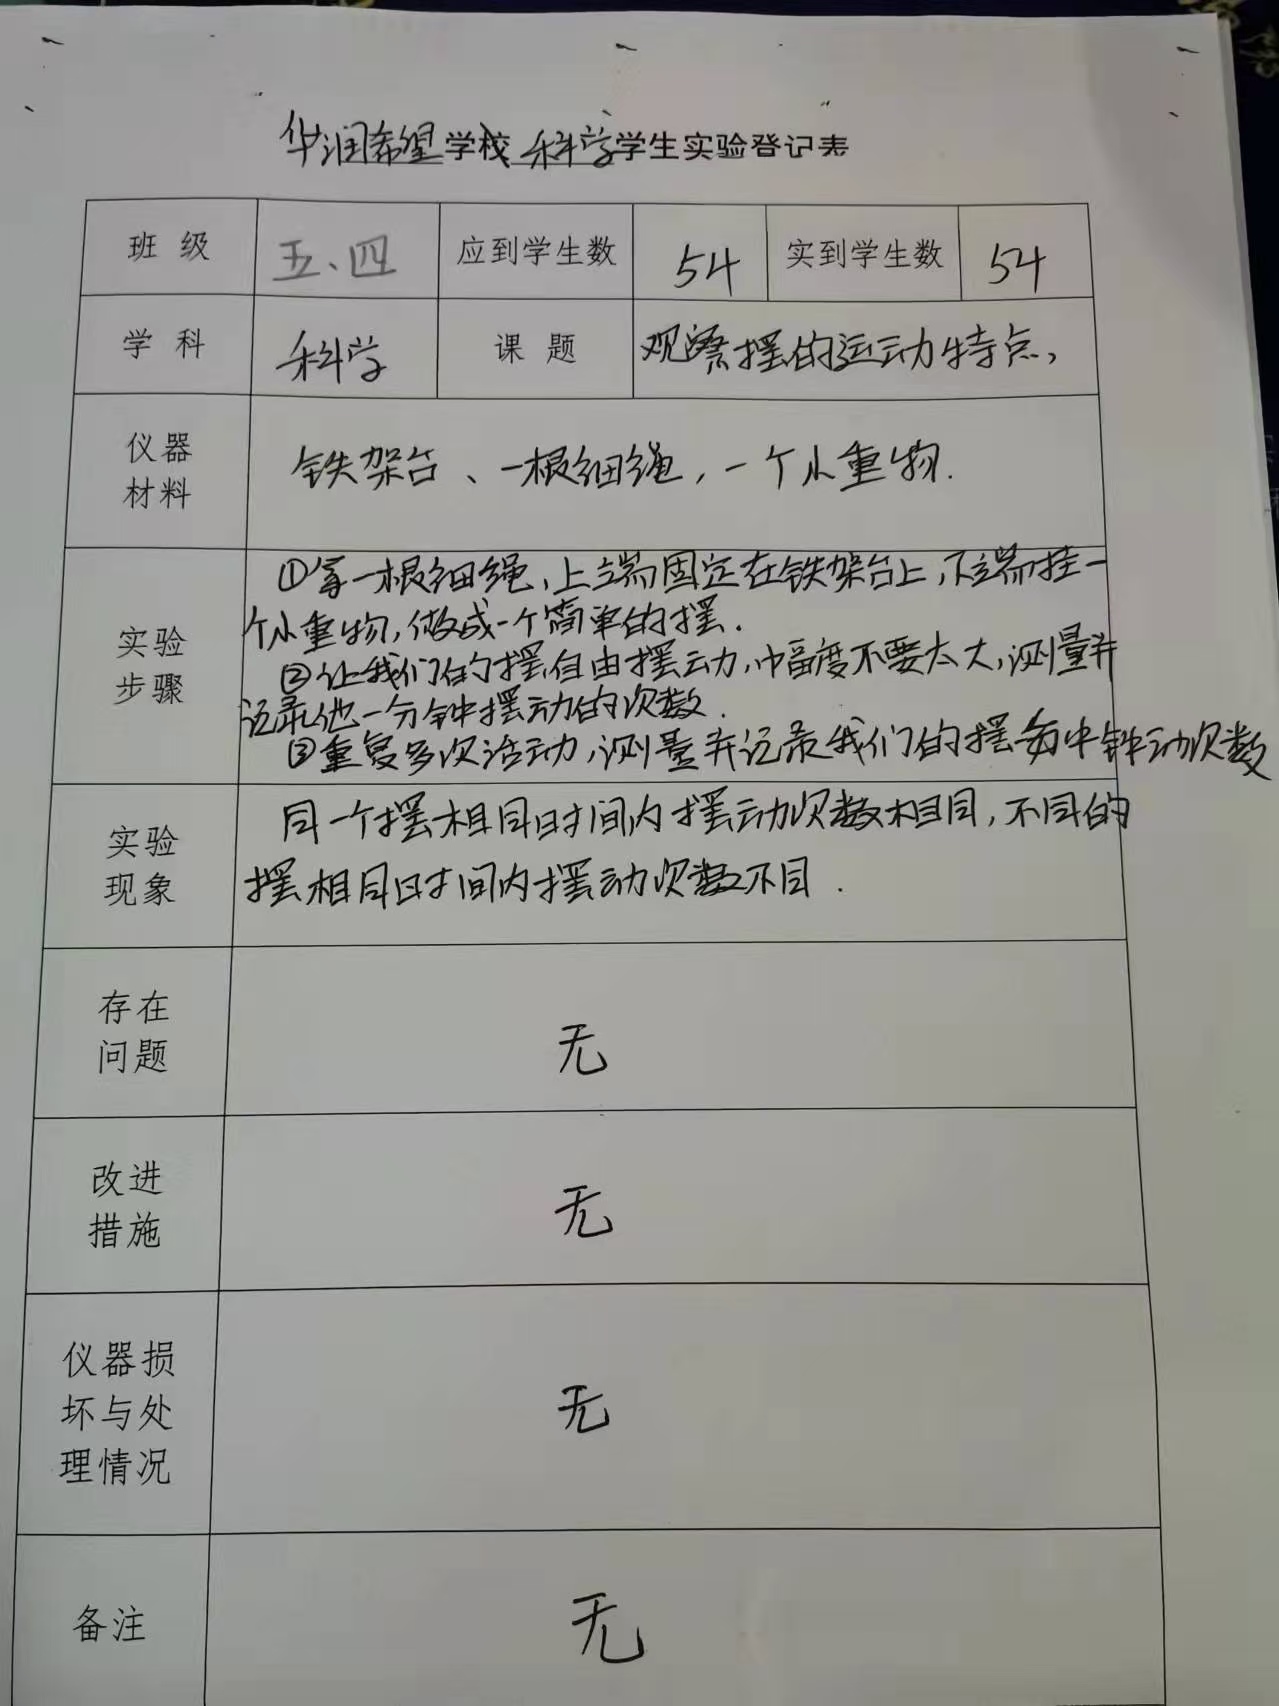 华润希望学校 科学学生实验登记表
班 级 五、四 应到学生数 54 实到学生数 54
学 科 科学 课 题 观察摆的运动特点,
仪器
材料
铁架台、一根细绳,一个小重物.
实验
步骤
①拿一根细绳,上端固定在铁架台上,下端挂一
个小重物,做成一个简单的摆.
②让我们的摆自由摆动,幅度不要太大,测量并
记录他一分钟摆动的次数.
③重复多次活动,测量并记录我们的摆每中钟动次数
实验
现象
同一个摆相同时间内摆动次数相同,不同的
摆相同时间内摆动次数不同.
存在
问题
无
改进
措施
无
仪器损
坏与处
理情况
无
备注 无